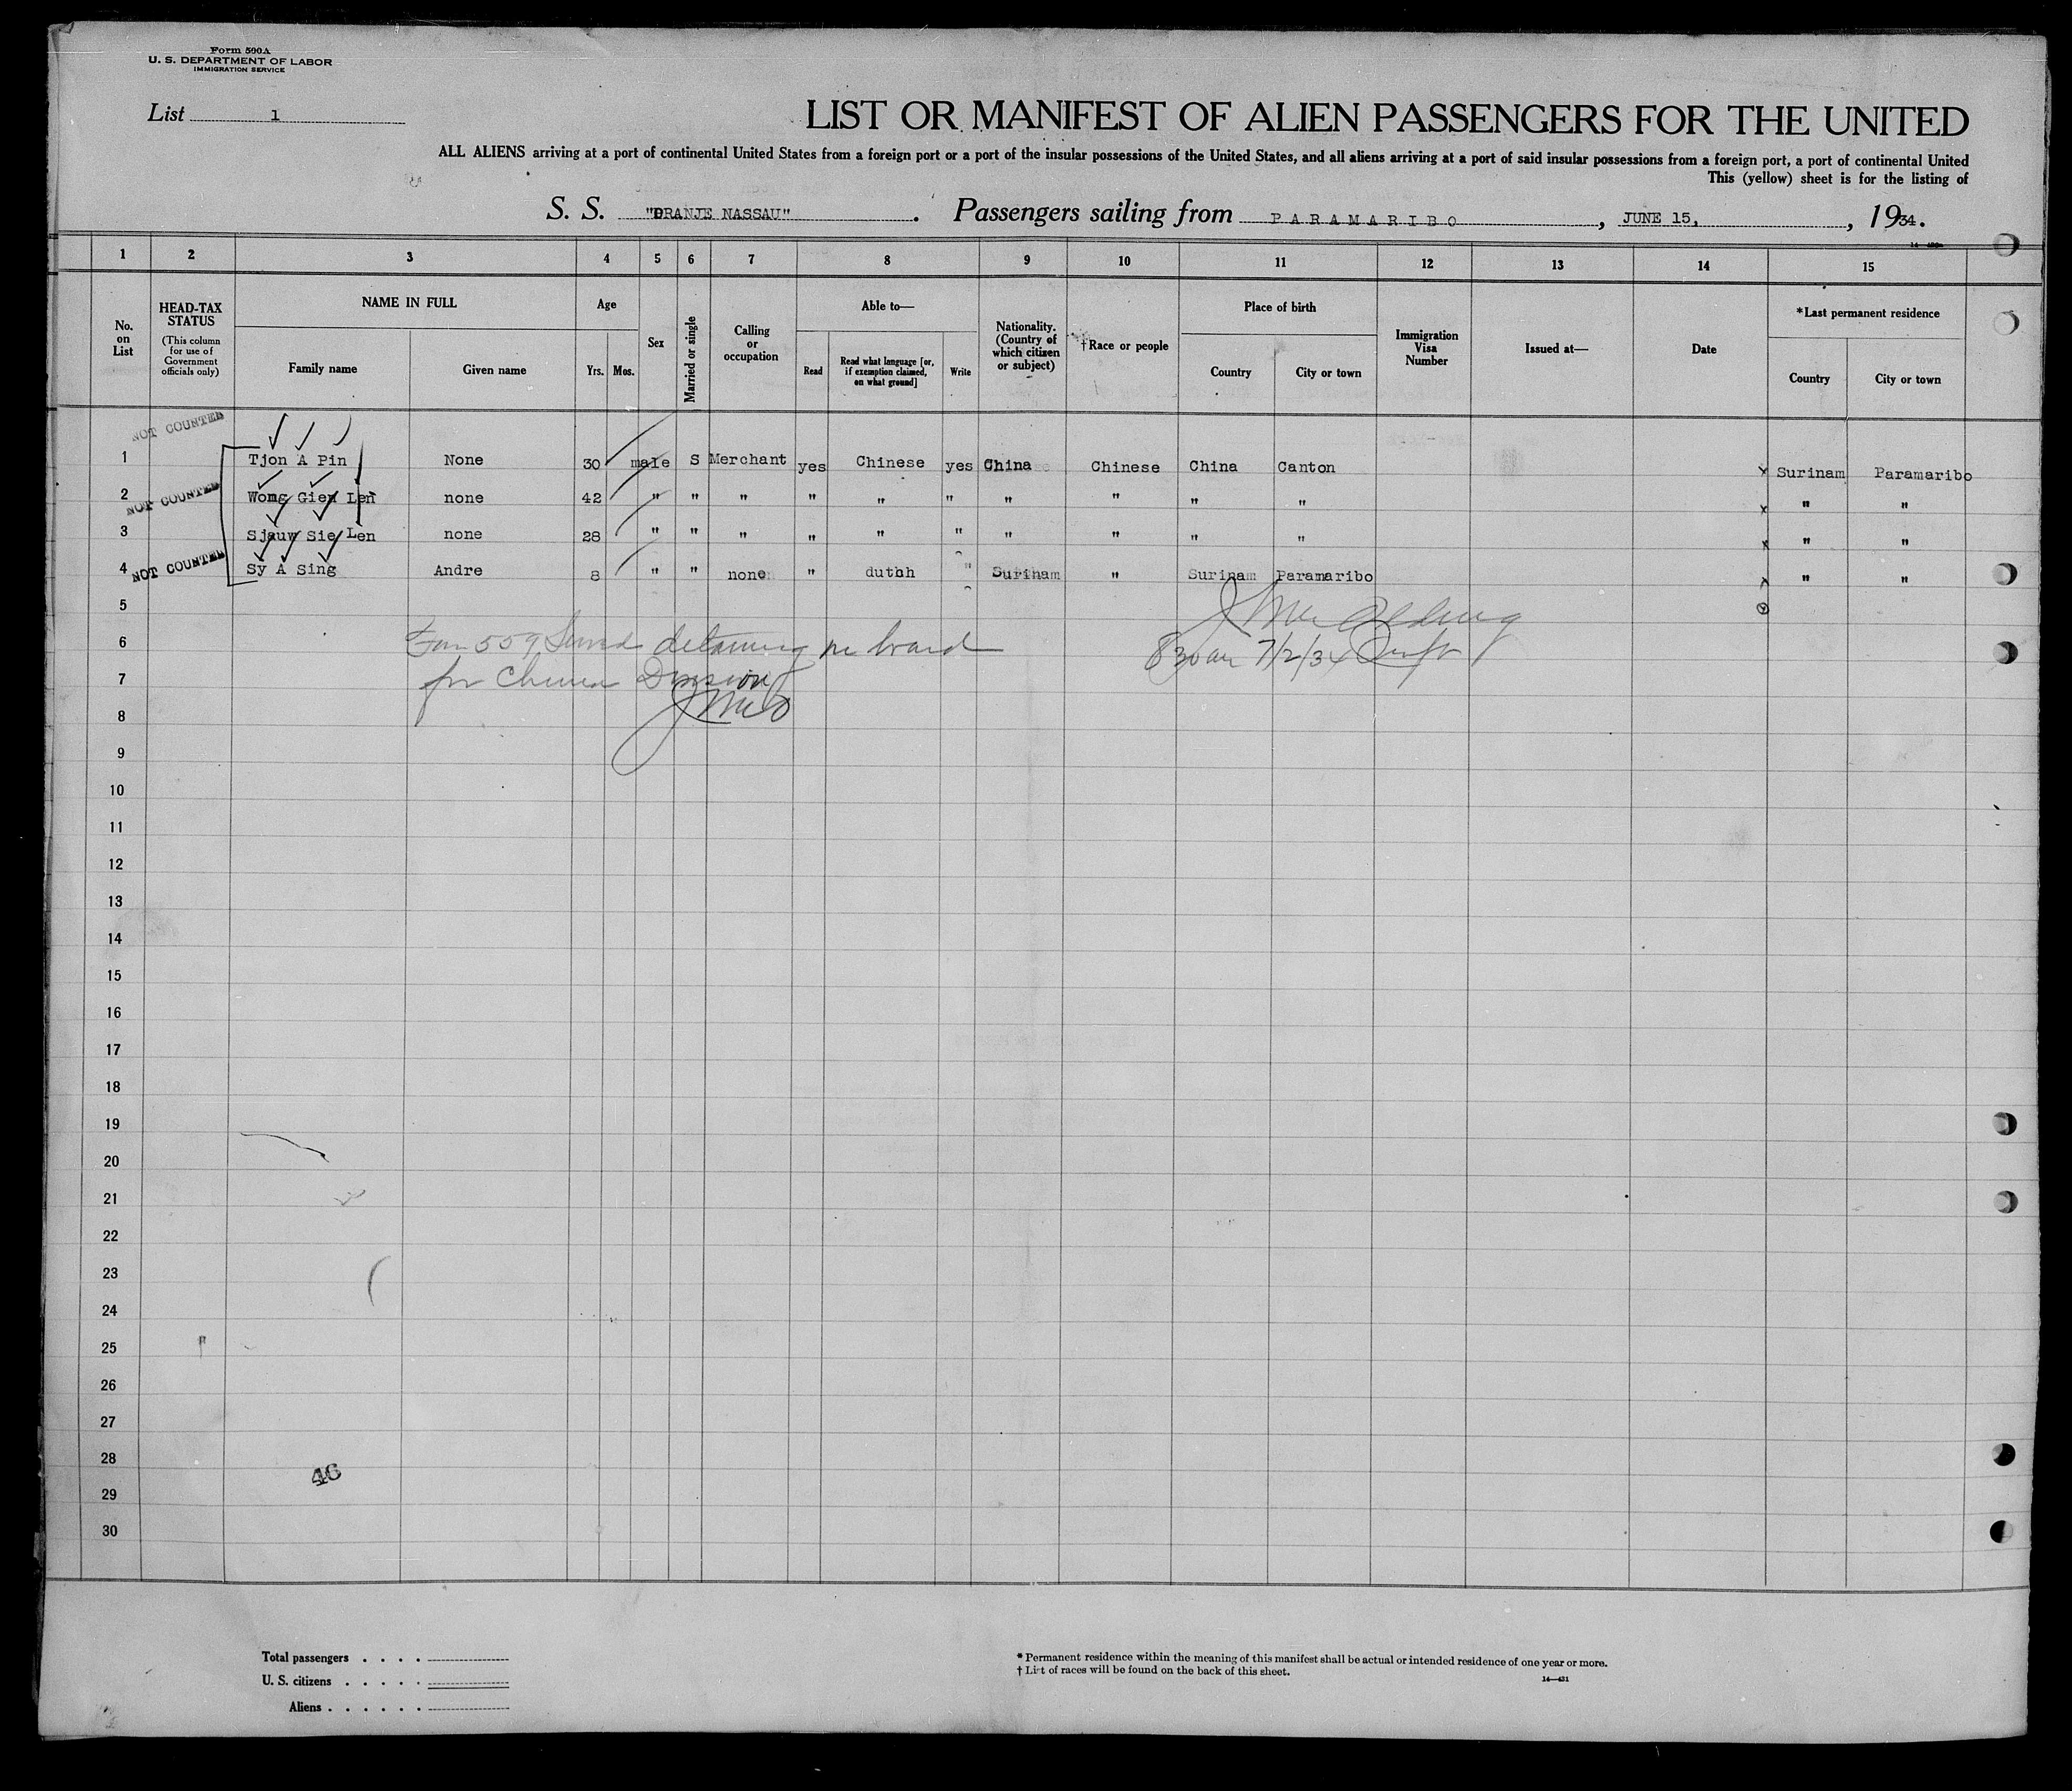 Form 500A
U. S. DEPARTMENT OF LABOR
IMMIGRATION SERVICE
List 1
LIST OR MANIFEST OF ALIEN PASSENGERS FOR THE UNITED
ALL ALIENS arriving at a port of continental United States from a foreign port or a port of the insular possessions of the United States, and all aliens arriving at a port of said insular possessions from a foreign port, a port of continental United
This (yellow) sheet is for the listing of
S. S. "ORANJE NASSAU" . Passengers sailing from PARAMARIBO , JUNE 15, , 1934.
1 2 3 4 5 6 7 8 9 10 11 12 13 14 15
No. on List
HEAD-TAX STATUS
(This column for use of Government officials only)
NAME IN FULL
Family name Given name
Age
Yrs. Mos.
Sex
Married or single
Calling or occupation
Able to—
Read Read what language [or, if exemption claimed, on what ground] Write
Nationality. (Country of which citizen or subject)
†Race or people
Place of birth
Country City or town
Immigration Visa Number
Issued at—
Date
*Last permanent residence
Country City or town
NOT COUNTED
1 Tjon A Pin None 30 male S Merchant yes Chinese yes China Chinese China Canton Surinam Paramaribo
NOT COUNTED
2 Wong Gien Len none 42 " " " " " " " " " " " "
3 Sjauw Sie Len none 28 " " " " " " " " " " " "
NOT COUNTED
4 Sy A Sing Andre 8 " " none " dutch " Surinam " Surinam Paramaribo " "
5
6 559 Served detaining on board 830am 7/2/34
7 for Chinese Division
8 JMcO
9
10
11
12
13
14
15
16
17
18
19
20
21
22
23
24
25
26
27
28
46
29
30
Total passengers . . . .
U. S. citizens . . . . .
Aliens . . . . . .
* Permanent residence within the meaning of this manifest shall be actual or intended residence of one year or more.
† List of races will be found on the back of this sheet.
14—431